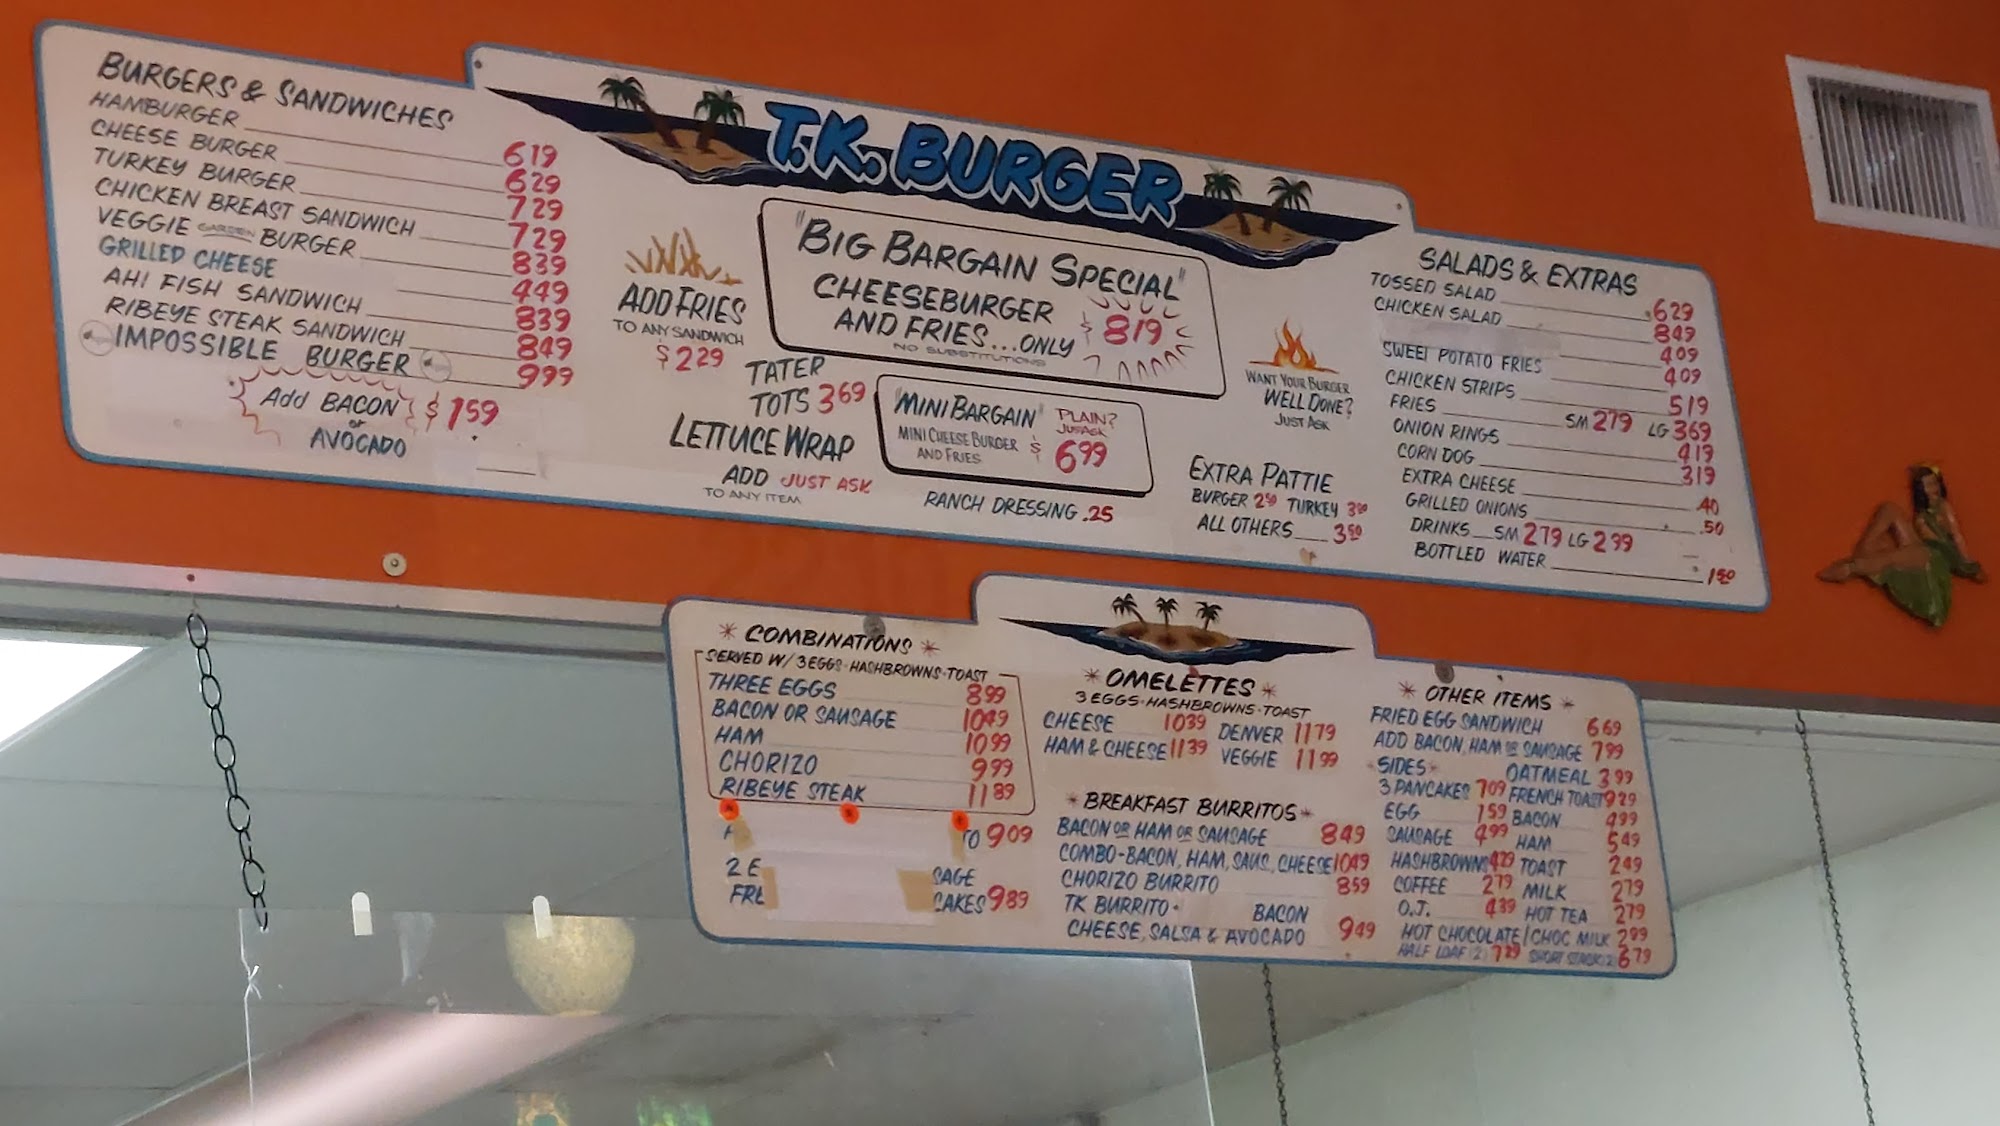 BURGERS & SANDWICHES
HAMBURGER 619
CHEESE BURGER 629
TURKEY BURGER 729
CHICKEN BREAST SANDWICH 729
VEGGIE GARDEN BURGER 839
GRILLED CHEESE 449
AHI FISH SANDWICH 839
RIBEYE STEAK SANDWICH 849
IMPOSSIBLE BURGER 999
Add BACON $1.59
or
AVOCADO
T.K. BURGER
"BIG BARGAIN SPECIAL"
CHEESEBURGER
AND FRIES...ONLY $819
NO SUBSTITUTIONS
ADD FRIES
TO ANY SANDWICH
$229
TATER
TOTS 369
LETTUCE WRAP
ADD JUST ASK
TO ANY ITEM
"MINI BARGAIN" PLAIN?
JUST ASK
MINI CHEESE BURGER $699
AND FRIES
RANCH DRESSING .25
WANT YOUR BURGER
WELL DONE?
JUST ASK
EXTRA PATTIE
BURGER 250 TURKEY 350
ALL OTHERS 350
SALADS & EXTRAS
TOSSED SALAD 629
CHICKEN SALAD 849
409
SWEET POTATO FRIES 409
CHICKEN STRIPS 519
FRIES SM 279 LG 369
ONION RINGS 419
CORN DOG 319
EXTRA CHEESE .40
GRILLED ONIONS .50
DRINKS SM 279 LG 299
BOTTLED WATER 150
* COMBINATIONS *
SERVED W/ 3 EGGS-HASHBROWNS-TOAST
THREE EGGS 899
BACON OR SAUSAGE 1049
HAM 1099
CHORIZO 999
RIBEYE STEAK 1189
TO 909
2 E SAGE
FRE CAKES 989
* OMELETTES *
3 EGGS-HASHBROWNS-TOAST
CHEESE 1039 DENVER 1179
HAM & CHEESE 1139 VEGGIE 1199
* BREAKFAST BURRITOS *
BACON OR HAM OR SAUSAGE 849
COMBO-BACON, HAM, SAUS, CHEESE 1049
CHORIZO BURRITO 859
TK BURRITO- BACON
CHEESE, SALSA & AVOCADO 949
* OTHER ITEMS *
FRIED EGG SANDWICH 669
ADD BACON, HAM OR SAUSAGE 799
*SIDES* OATMEAL 399
3 PANCAKES 709 FRENCH TOAST 929
EGG 159 BACON 499
SAUSAGE 499 HAM 549
HASHBROWNS 429 TOAST 249
COFFEE 279 MILK 279
O.J. 439 HOT TEA 279
HOT CHOCOLATE/CHOC MILK 299
HALF LOAF (2) 729 SHORT STACK (2) 679